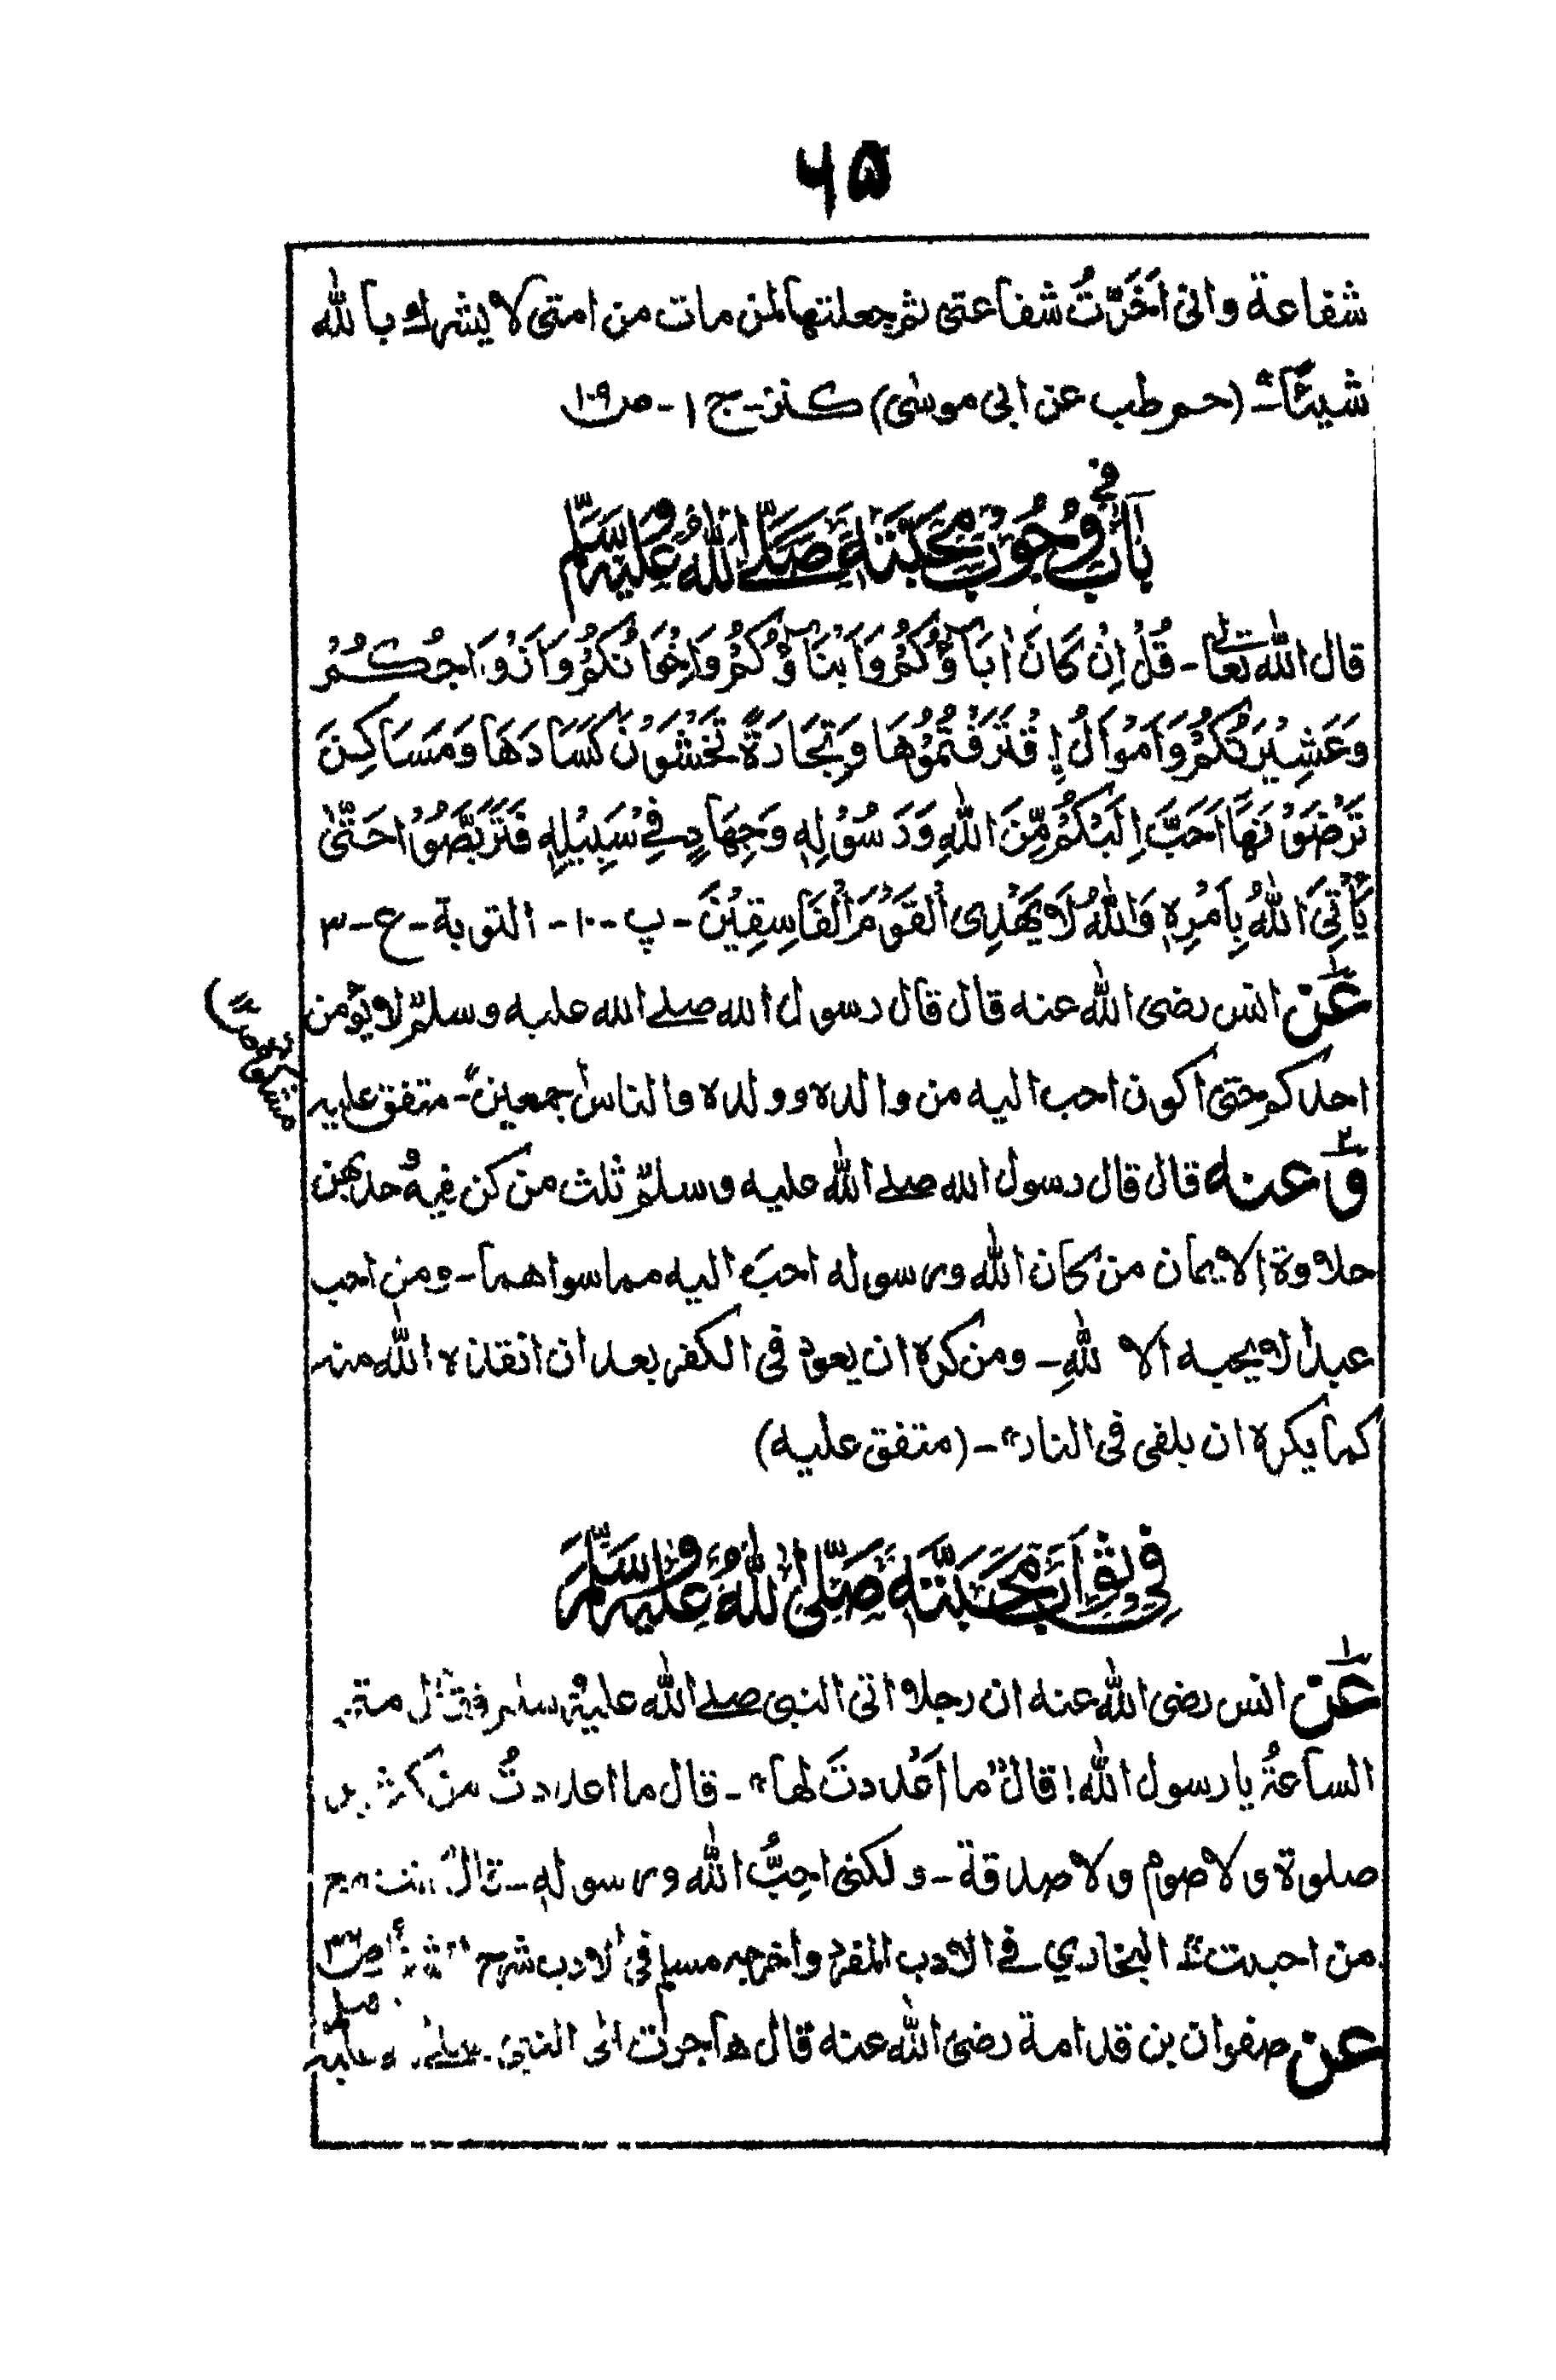 ۶۵
شفاعة وانى اَخَّرْتُ شفاعتى ثم جعلتها لمن مات من امتى لا يشرك بالله
شيئًا" - (حم طب عن ابى موسٰى) كنز - ج ١ - ص ١٠٩
بَابٌ فِي وُجُوْبِ مَحَبَّتِهٖ صَلَّى اللّٰهُ عَلَيْهِ وَسَلَّمَ
قال اللّٰه تعالٰى - قُلْ اِنْ كَانَ اٰبَآؤُكُمْ وَاَبْنَآؤُكُمْ وَاِخْوَانُكُمْ وَاَزْوَاجُكُمْ
وَعَشِيْرَتُكُمْ وَاَمْوَالُ اِۨقْتَرَفْتُمُوْهَا وَتِجَارَةٌ تَخْشَوْنَ كَسَادَهَا وَمَسَاكِنَ
تَرْضَوْنَهَا اَحَبَّ اِلَيْكُمْ مِّنَ اللّٰهِ وَرَسُوْلِهٖ وَجِهَادٍ فِيْ سَبِيْلِهٖ فَتَرَبَّصُوْا حَتّٰى
يَأْتِيَ اللّٰهُ بِاَمْرِهٖ وَاللّٰهُ لَا يَهْدِى الْقَوْمَ الْفَاسِقِيْنَ - پ - ١٠ - التوبة - ع - ٣
١ عَن انس رضى اللّٰه عنه قال قال رسول الله صلے الله عليه وسلم لا يؤمن
احدكم حتى اكون احب اليه من والده وولده والناس اجمعين" - متفق عليه
مشكوة
٢ وَعنه قال قال رسول الله صلے اللّٰه عليه وسلم ثلث من كن فيه وجد بهن
حلاوة الايمان من كان اللّٰه ورسوله احبَّ اليه مما سواهما - ومن احب
عبدا لا يحبه الا للّٰهِ - ومن كره ان يعود فى الكفر بعد ان انقذه اللّٰه منه
كما يكره ان يلقى فى النار" - (متفق عليه)
فِيْ ثَوَابِ مَحَبَّتِهٖ صَلَّى اللّٰهُ عَلَيْهِ وَسَلَّمَ
١ عَن انس رضى اللّٰه عنه ان رجلا اتى النبى صلے اللّٰه عليه وسلم فقال متى
الساعةُ يا رسول اللّٰه! قال "ما اَعْددتَ لها" - قال ما اعددتُ من كثير
صلوة ولا صوم ولا صدقة - ولكنى احِبُّ اللّٰه ورسوله - قال انت مع
من احببت" البخاري فى الادب المفرد واخرجه مسلم فى الادب شرح
عن صفوان بن قدامة رضى اللّٰه عنه قال هاجرت الى النبى صلے عليه